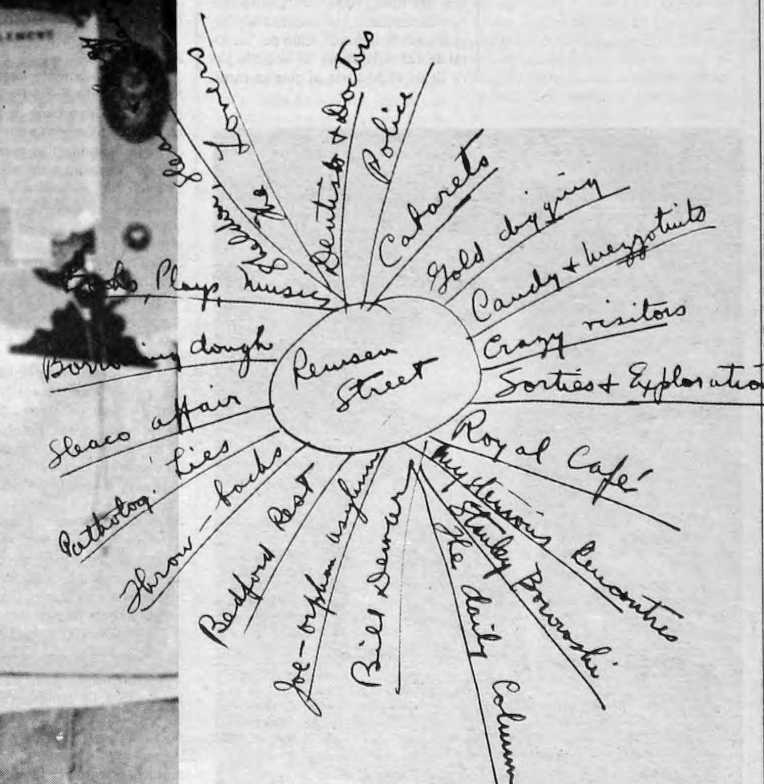 Remsen
Street
The Lovers
Dentists & Doctors
Police
Cabarets
Gold digging
Candy & Mezzotints
Crazy visitors
Sorties & Exploratio
Royal Café
Mysterious Rencontres
Stanley Borowski
The daily Column
Bill Dewar
Joe - orphan asylum
Bedford Rest
Throw - backs
Patholog. Lies
affair
Borrowing dough
Books, Plays, Music
Sheldon,